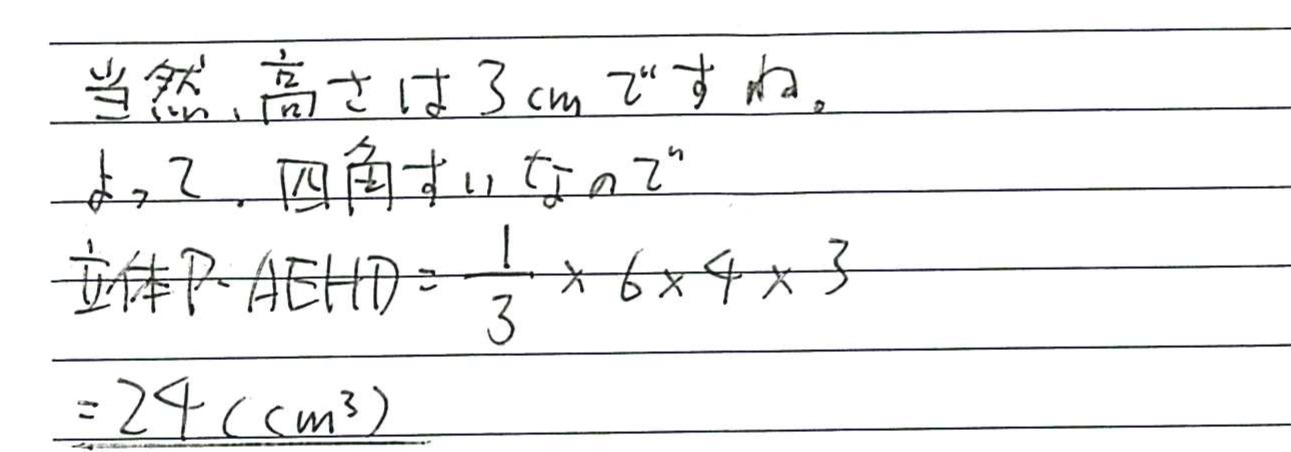 当然、高さは3cmですね。
よって、四角すいなので
立体P-AEHD = 1/3 × 6 × 4 × 3
= 24 (cm³)